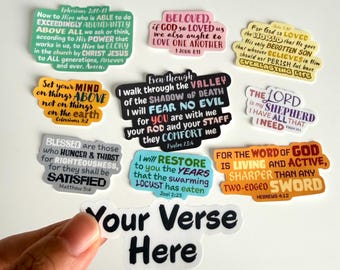 Ephesians 3:20-21
Now to Him who is ABLE to do
EXCEEDINGLY ABUNDANTLY
ABOVE ALL we ask or think,
according to the POWER that
works in us, to Him be GLORY
in the church by CHRIST JESUS
to all generations,
Amen.
BELOVED,
if GOD so LOVED us
we also ought to
LOVE ONE ANOTHER
1 JOHN 4:11
For God so LOVED
the WORLD
His only BEGOTTEN SON
whoever BELIEVES in Him
should not PERISH but have
EVERLASTING LIFE
Set your MIND
on things ABOVE
not on things
on the earth
Colossians 3:2
Even though
I walk through the VALLEY
of the SHADOW OF DEATH
I will FEAR NO EVIL
for YOU are with me
YOUR ROD and YOUR STAFF
they COMFORT me
Psalm 23:4
The LORD
is my SHEPHERD
I HAVE ALL that
I NEED
PSALM 23:1
BLESSED are those
who HUNGER & THIRST
for RIGHTEOUSNESS
for they shall be
SATISFIED
Matthew 5:6
I will RESTORE
to you the YEARS
that the swarming
LOCUST has eaten
Joel 2:25
FOR THE WORD OF GOD
IS LIVING AND ACTIVE,
SHARPER THAN ANY
TWO-EDGED SWORD
HEBREWS 4:12
Your Verse
Here